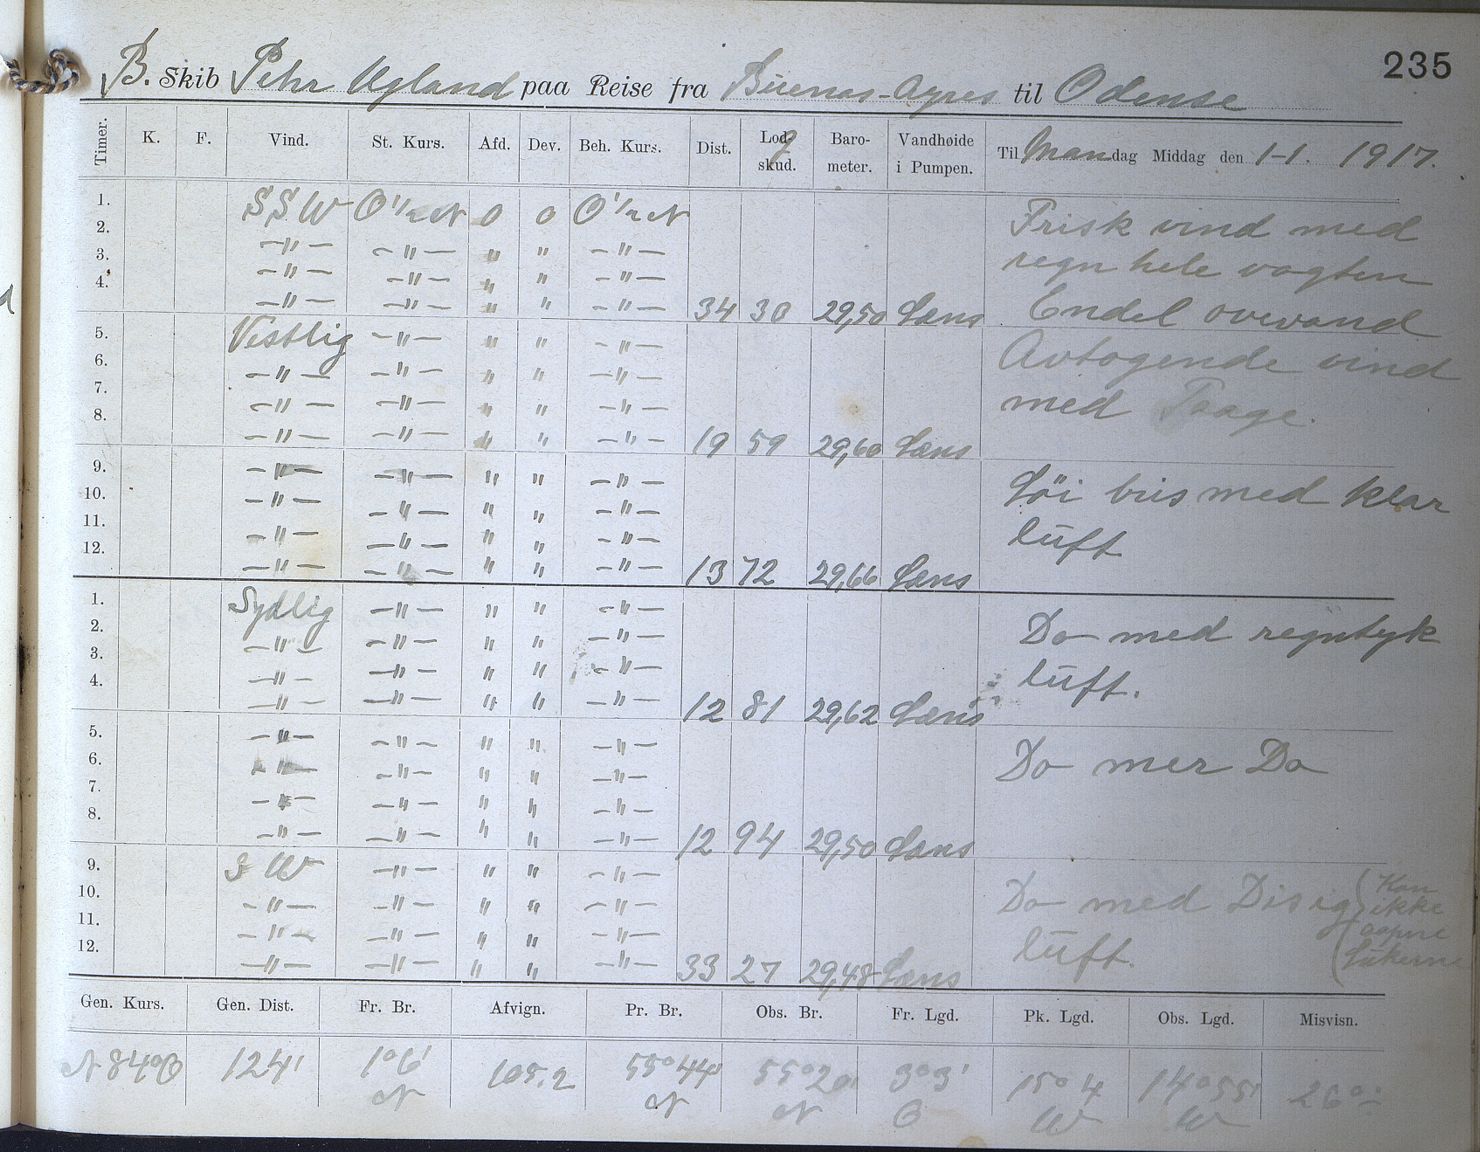 235
B. Skib Pehr Ugland paa Reise fra Buenos-Ayres til Odense
Timer. K. F. Vind. St. Kurs. Afd. Dev. Beh. Kurs. Dist. Lod- skud. Baro- meter. Vandhøide i Pumpen. Til Mandag Middag den 1-1. 1917.
1. SSW O 1/2 N 0 0 O 1/2 N Frisk vind med
2. —"— —"— " " —"— regn hele vagten
3. —"— —"— " " —"—
4. —"— —"— " " —"— 34 30 29,50 Læns Endel overvand
5. Vestlig —"— " " —"— Avtogende vind
6. —"— —"— " " —"— med Taage.
7. —"— —"— " " —"—
8. —"— —"— " " —"— 19 59 29,60 Læns
9. —"— —"— " " —"— Løi bris med klar
10. —"— —"— " " —"— luft
11. —"— —"— " " —"—
12. —"— —"— " " —"— 13 72 29,66 Læns
1. Sydlig —"— " " —"— Do med regntyk
2. —"— —"— " " —"—
3. —"— —"— " " —"— luft.
4. —"— —"— " " —"— 12 81 29,62 Læns
5. —"— —"— " " —"— Do mer Do
6. —"— —"— " " —"—
7. —"— —"— " " —"—
8. —"— —"— " " —"— 12 94 29,50 Læns
9. S W —"— " " —"— Do med Disig (Kan
10. —"— —"— " " —"— ikke
11. —"— —"— " " —"— luft.
12. —"— —"— " " —"— 33 27 29,48 Læns Lukerne
Gen. Kurs. Gen. Dist. Fr. Br. Afvign. Pr. Br. Obs. Br. Fr. Lgd. Pk. Lgd. Obs. Lgd. Misvisn.
N 84° O 124' 1° 6' N 105.2 55° 44' N 55° 20' N 3° 3' O 15° 4 W 14° 55' W 26°